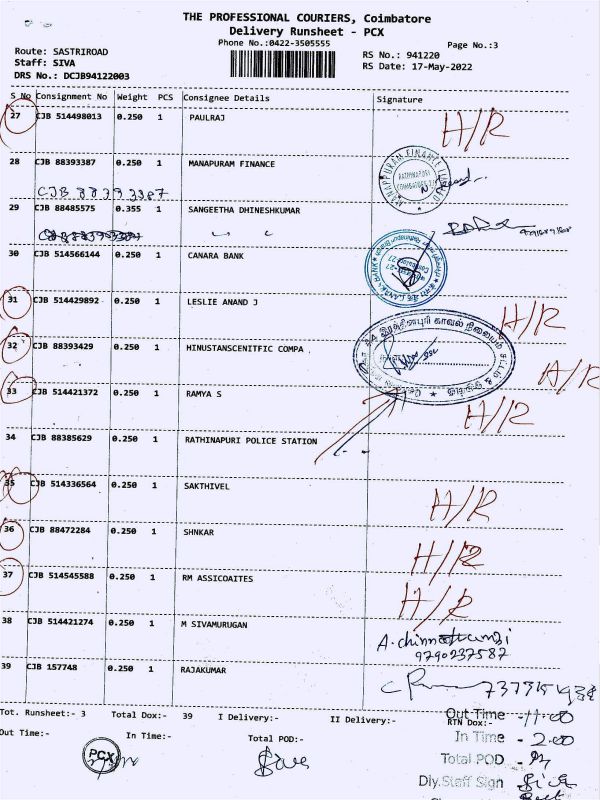 THE PROFESSIONAL COURIERS, Coimbatore
Delivery Runsheet - PCX
Phone No.:0422-3505555
Page No.:3
Route: SASTRIROAD
Staff: SIVA
DRS No.: DCJB94122003
RS No.: 941220
RS Date: 17-May-2022
S No Consignment No Weight PCS Consignee Details Signature
27 CJB 514498013 0.250 1 PAULRAJ H/R
28 CJB 88393387 0.250 1 MANAPURAM FINANCE
CJB 88393387
29 CJB 88485575 0.355 1 SANGEETHA DHINESHKUMAR
30 CJB 514566144 0.250 1 CANARA BANK
31 CJB 514429892 0.250 1 LESLIE ANAND J H/R
32 CJB 88393429 0.250 1 HINUSTANSCENITFIC COMPA A/R
33 CJB 514421372 0.250 1 RAMYA S H/R
34 CJB 88385629 0.250 1 RATHINAPURI POLICE STATION
35 CJB 514336564 0.250 1 SAKTHIVEL H/R
36 CJB 88472284 0.250 1 SHNKAR H/R
37 CJB 514545588 0.250 1 RM ASSICOAITES H/R
38 CJB 514421274 0.250 1 M SIVAMURUGAN
9790237587
39 CJB 157748 0.250 1 RAJAKUMAR
Tot. Runsheet:- 3 Total Dox:- 39 I Delivery:- II Delivery:- RTN Dox:-
Out Time - 11.00
Out Time:- In Time:- Total POD:-
In Time - 2.00
PCX
Total POD -
Dly.Staff Sign